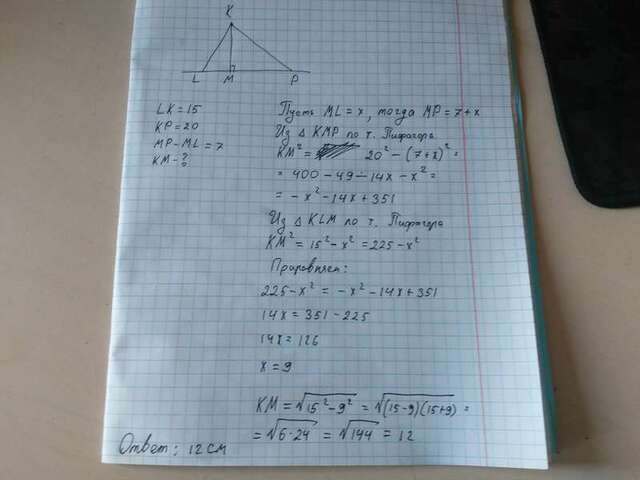 K
L M P
LK = 15
KP = 20
MP - ML = 7
KM - ?
Пусть ML = x, тогда MP = 7 + x
Из △ KMP по т. Пифагора
KM² = 20² - (7 + x)² =
= 400 - 49 - 14x - x² =
= - x² - 14x + 351
Из △ KLM по т. Пифагора
KM² = 15² - x² = 225 - x²
Приравняем:
225 - x² = - x² - 14x + 351
14x = 351 - 225
14x = 126
x = 9
KM = √15² - 9² = √(15 - 9)(15 + 9) =
= √6·24 = √144 = 12
Ответ: 12 см